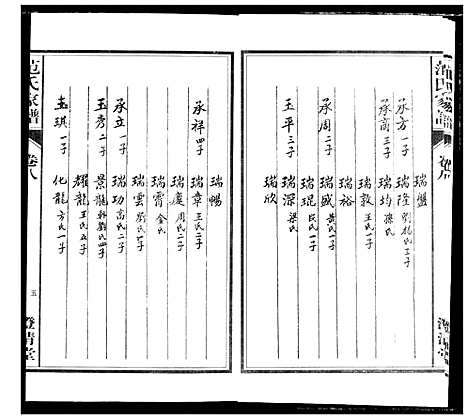 范氏家譜
瑞盤
承方一子 瑞隆 劉楊氏三子
承啇三子 瑞均 孫氏
瑞敦 王氏一子
瑞裕
承周二子 瑞盛 黄氏一子
瑞琨 段氏一子
玉平三子 瑞深 梁氏
瑞欣
瑞暢
承祥四子 瑞章 王氏一子
瑞慶 周氏二子
瑞霄 金氏
瑞雲 劉氏一子
承立一子 瑞功 高氏二子
玉秀二子 景龍 韓劉氏四子
耀龍 王氏五子
玉琪一子 化龍 方氏一子
范氏家譜
卷八
五
澄清堂